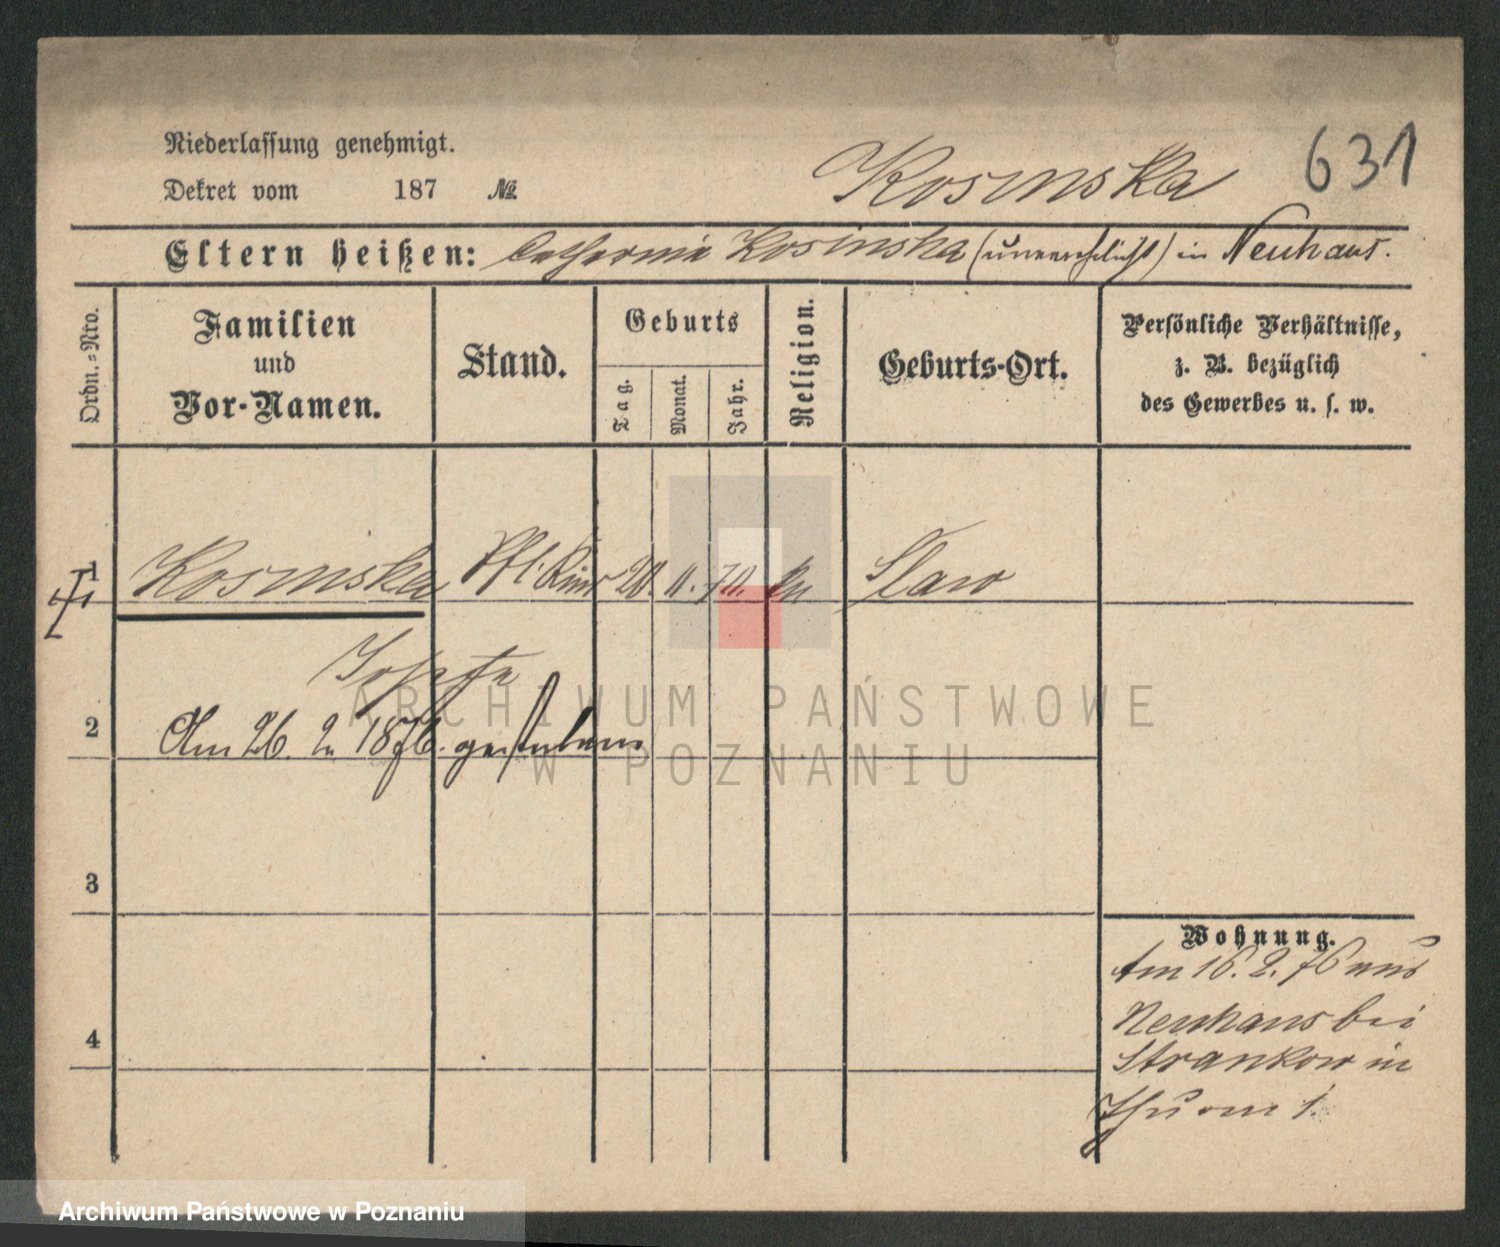 Niederlassung genehmigt.
Dekret vom 187 №
Kosinska 631
Eltern heißen: Catharina Kosinska (unverehelicht) in Neuhaus.
Ordn.=Nro.
Familien
und
Vor-Namen.
Stand.
Geburts
Tag.
Monat.
Jahr.
Religion.
Geburts-Ort.
Persönliche Verhältnisse,
z. B. bezüglich
des Gewerbes u. s. w.
1 Kosinska Pfl. Kind 20. 11. 70. Slaw
Josefa
2 Am 26. 2. 1876. gestorben
3
4
Wohnung.
Am 16. 2. 76 aus
Neuhaus bei
Strankow in
Thurm 1.
ARCHIWUM PAŃSTWOWE
W POZNANIU
Archiwum Państwowe w Poznaniu